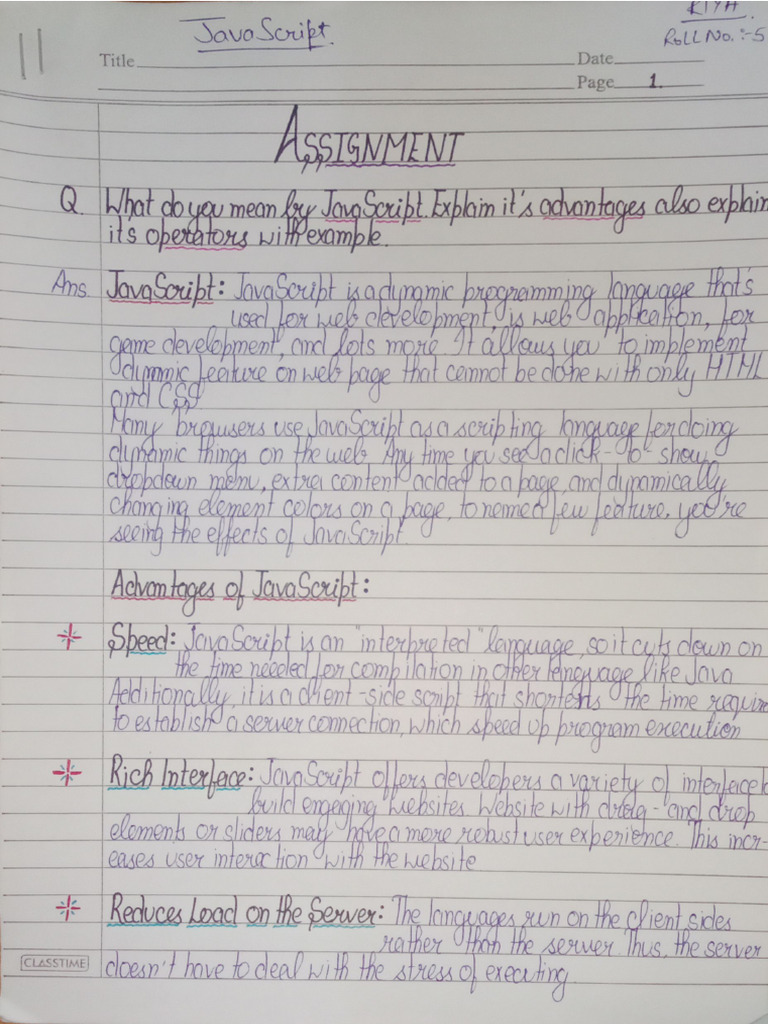 JavaScript.
RIYA.
ROLL NO. :- 5
Title
Date
Page 1.
ASSIGNMENT
Q. What do you mean by JavaScript. Explain it's advantages also explain
its operators with example.
Ans. JavaScript: JavaScript is a dynamic programming language that's
used for web development, is web application, for
game development, and lots more. It allows you to implement
dynmic feature on web page that cannot be done with only HTML
and CSS
Many browsers use JavaScript as a scripting language for doing
dynamic things on the web. Any time you see a click-to-show
dropdown menu, extra content added to a page, and dynamically
changing element colors on a page, to name a few feature, you're
seeing the effects of JavaScript.
Advantages of JavaScript:
Speed: JavaScript is an "interpreted" language, so it cuts down on
the time needed for compilation in other language like Java
Additionally, it is a client-side script that shortens the time requir
to establish a server connection, which speed up program execution
Rich Interface: JavaScript offers developers a variety of interface
build engaging websites. Website with drag-and drop
elements or sliders may have a more robust user experience. This incr-
eases user interaction with the website
Reduces Load on the Server: The languages run on the client sides
rather than the server. Thus, the server
doesn't have to deal with the stress of executing
CLASSTIME